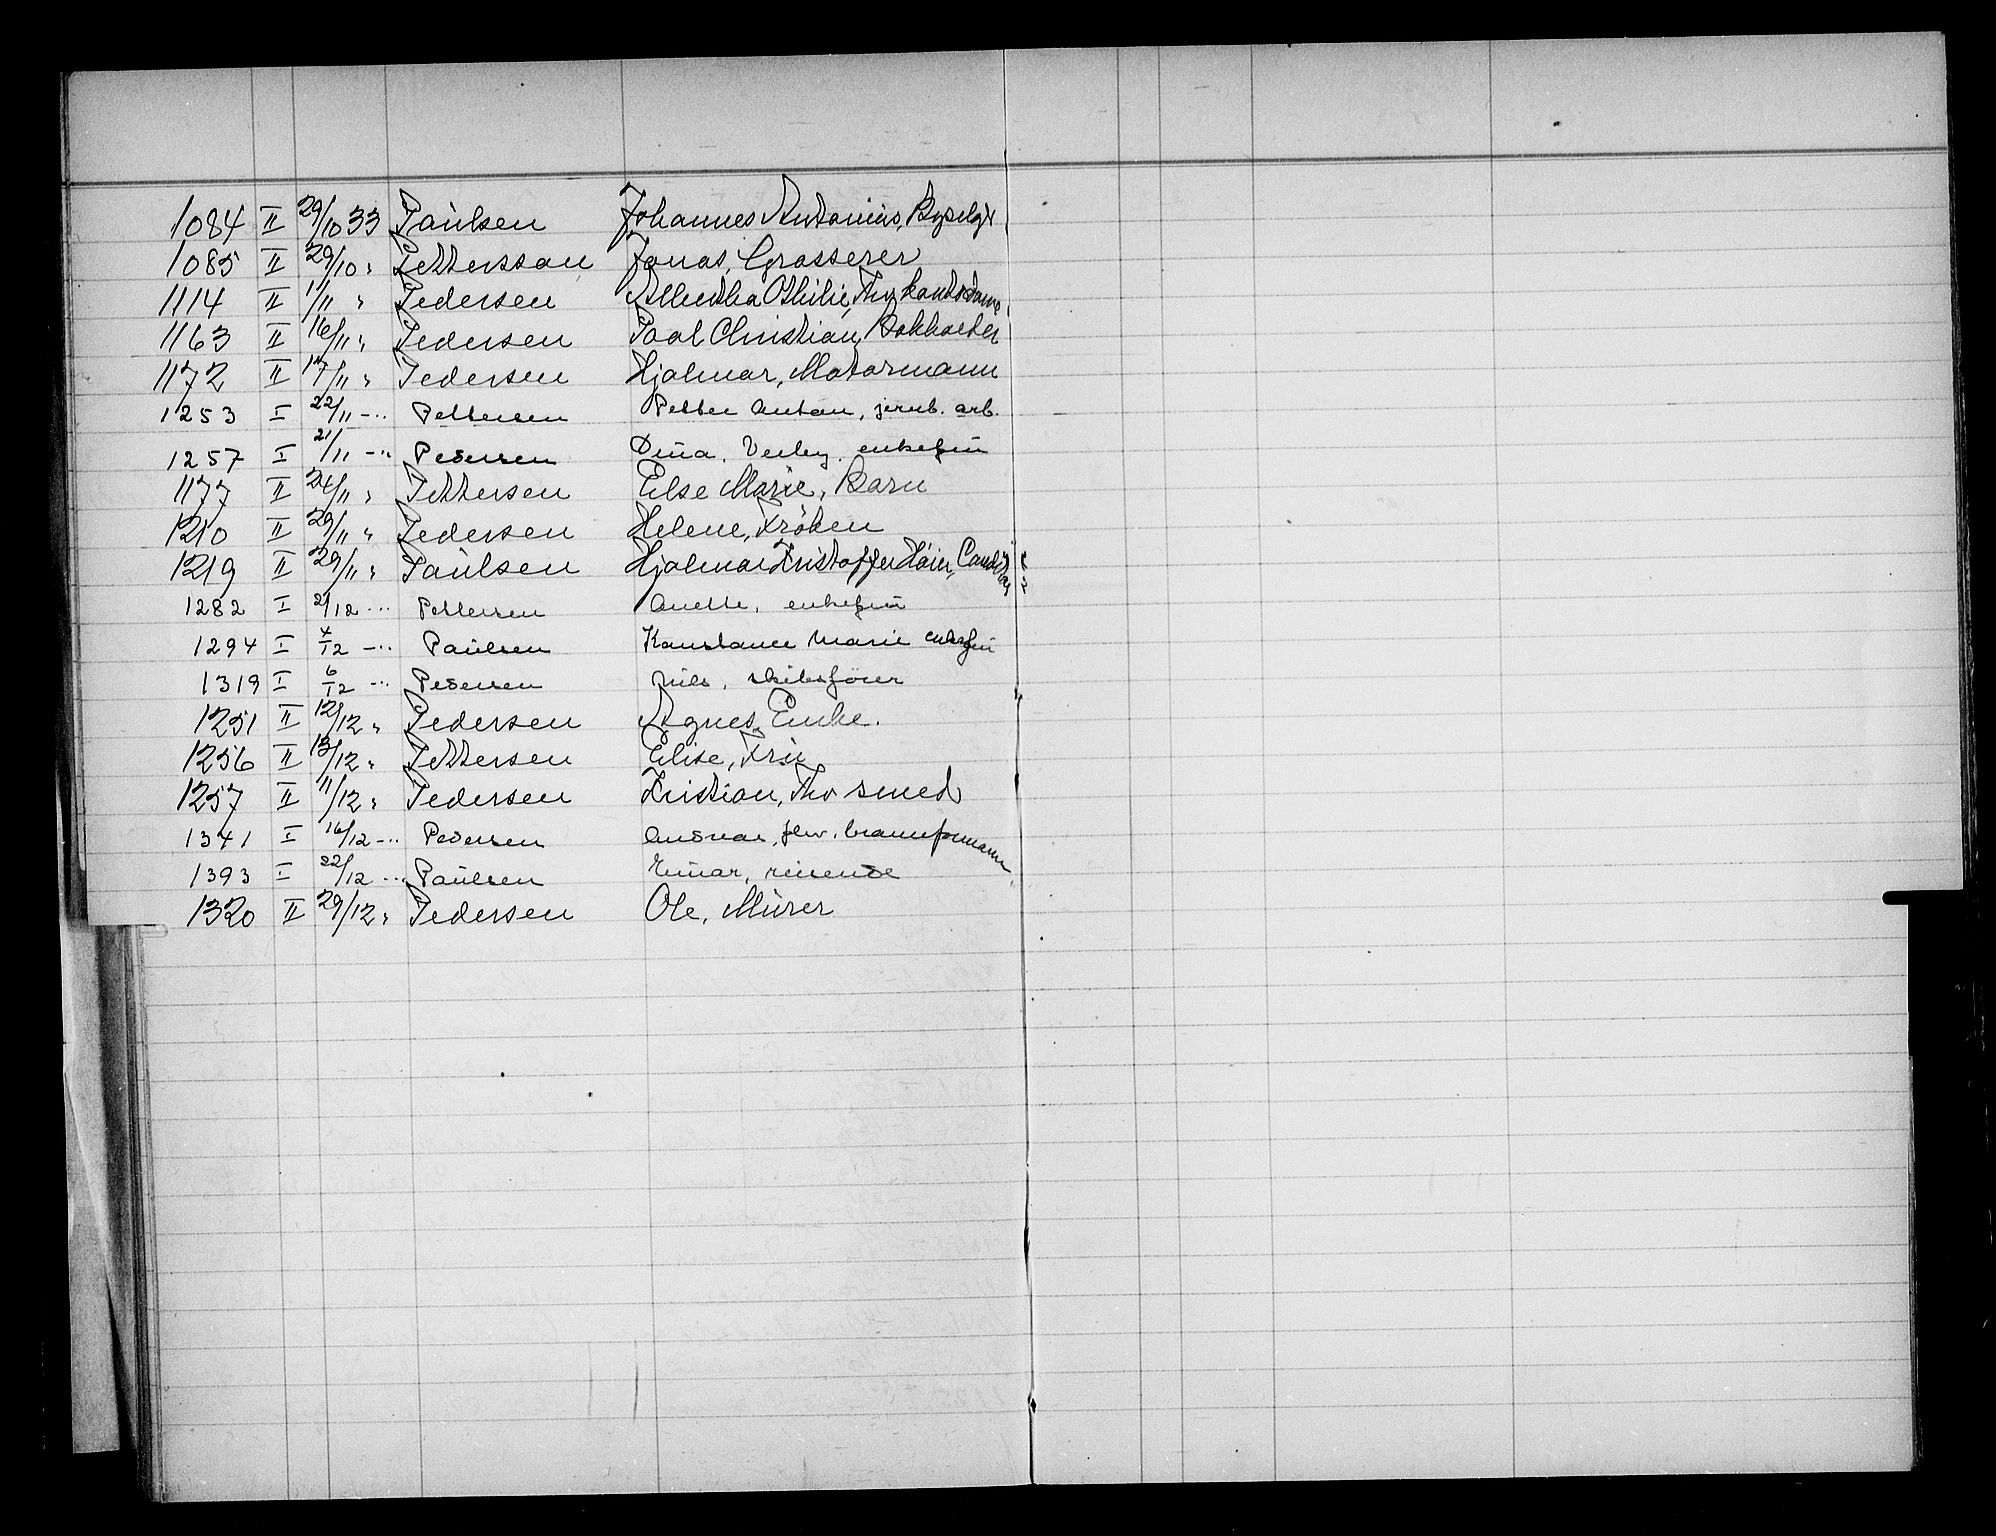 1084 II 29/10 33 Paulsen Johannes Antonius, Byselgr
1085 II 29/10 " Petterssan Jonas, Grosserer
1114 II 1/11 " Pedersen Othilie, Fhv kontordame
1163 II 16/11 " Pedersen Paal Christian, Bokholder
1172 II 17/11 " Pedersen Hjalmar, Motormann
1253 I 22/11 -"- Pettersen Petter Anton, jernb. arb.
1257 I 21/11 -"- Pedersen Dina, enkefru
1177 II 24/11 " Pettersen Else Marie, Barn
1210 II 29/11 " Pedersen Helene, Fröken
1219 II 29/11 " Paulsen Hjalmar Kristoffer
1282 I 2/12 -"- Pettersen Anette, enkefru
1294 I 4/12 -"- Paulsen Konstance Marie enkefru
1319 I 6/12 -"- Pedersen Nils, skibsförer
1251 II 12/12 " Pedersen Agnes, Enke.
1256 II 13/12 " Pettersen Elise, Fru
1257 II 11/12 " Pedersen Kristian, Fhv smed
1341 I 16/12 -"- Pedersen Andreas, fhv. brannformann
1393 I 22/12 -"- Paulsen Einar, reisende
1320 II 29/12 " Pedersen Ole, Murer